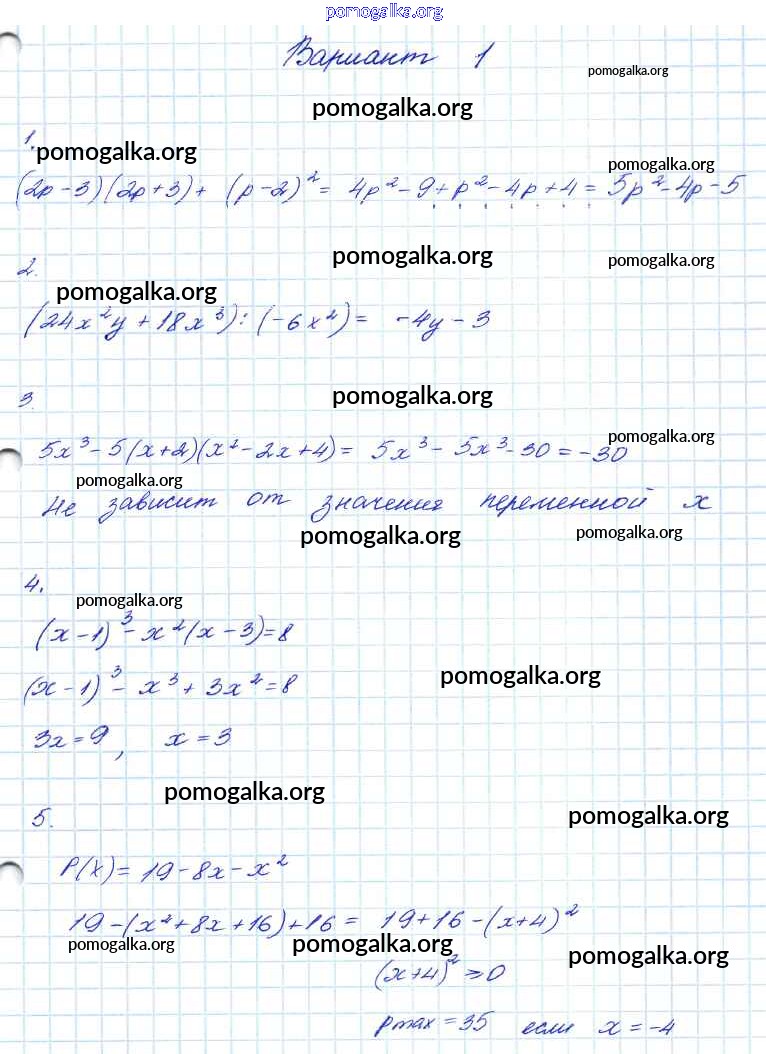 pomogalka.org
Вариант 1
pomogalka.org
pomogalka.org
1.
pomogalka.org
pomogalka.org
(2p-3)(2p+3)+(p-2)²= 4p²-9+p²-4p+4=5p²-4p-5
2.
pomogalka.org
pomogalka.org
pomogalka.org
(24x²y+18x³):(-6x²)= -4y-3
3.
pomogalka.org
pomogalka.org
5x³-5(x+2)(x²-2x+4)= 5x³-5x³-30=-30
pomogalka.org
Не зависит от значения переменной x
pomogalka.org
pomogalka.org
4.
pomogalka.org
(x-1)³-x²(x-3)=8
pomogalka.org
(x-1)³-x³+3x²=8
3x=9, x=3
pomogalka.org
5.
pomogalka.org
P(x)=19-8x-x²
19-(x²+8x+16)+16= 19+16-(x+4)²
pomogalka.org
pomogalka.org
pomogalka.org
(x+4)²≥0
pmax=35 если x=-4